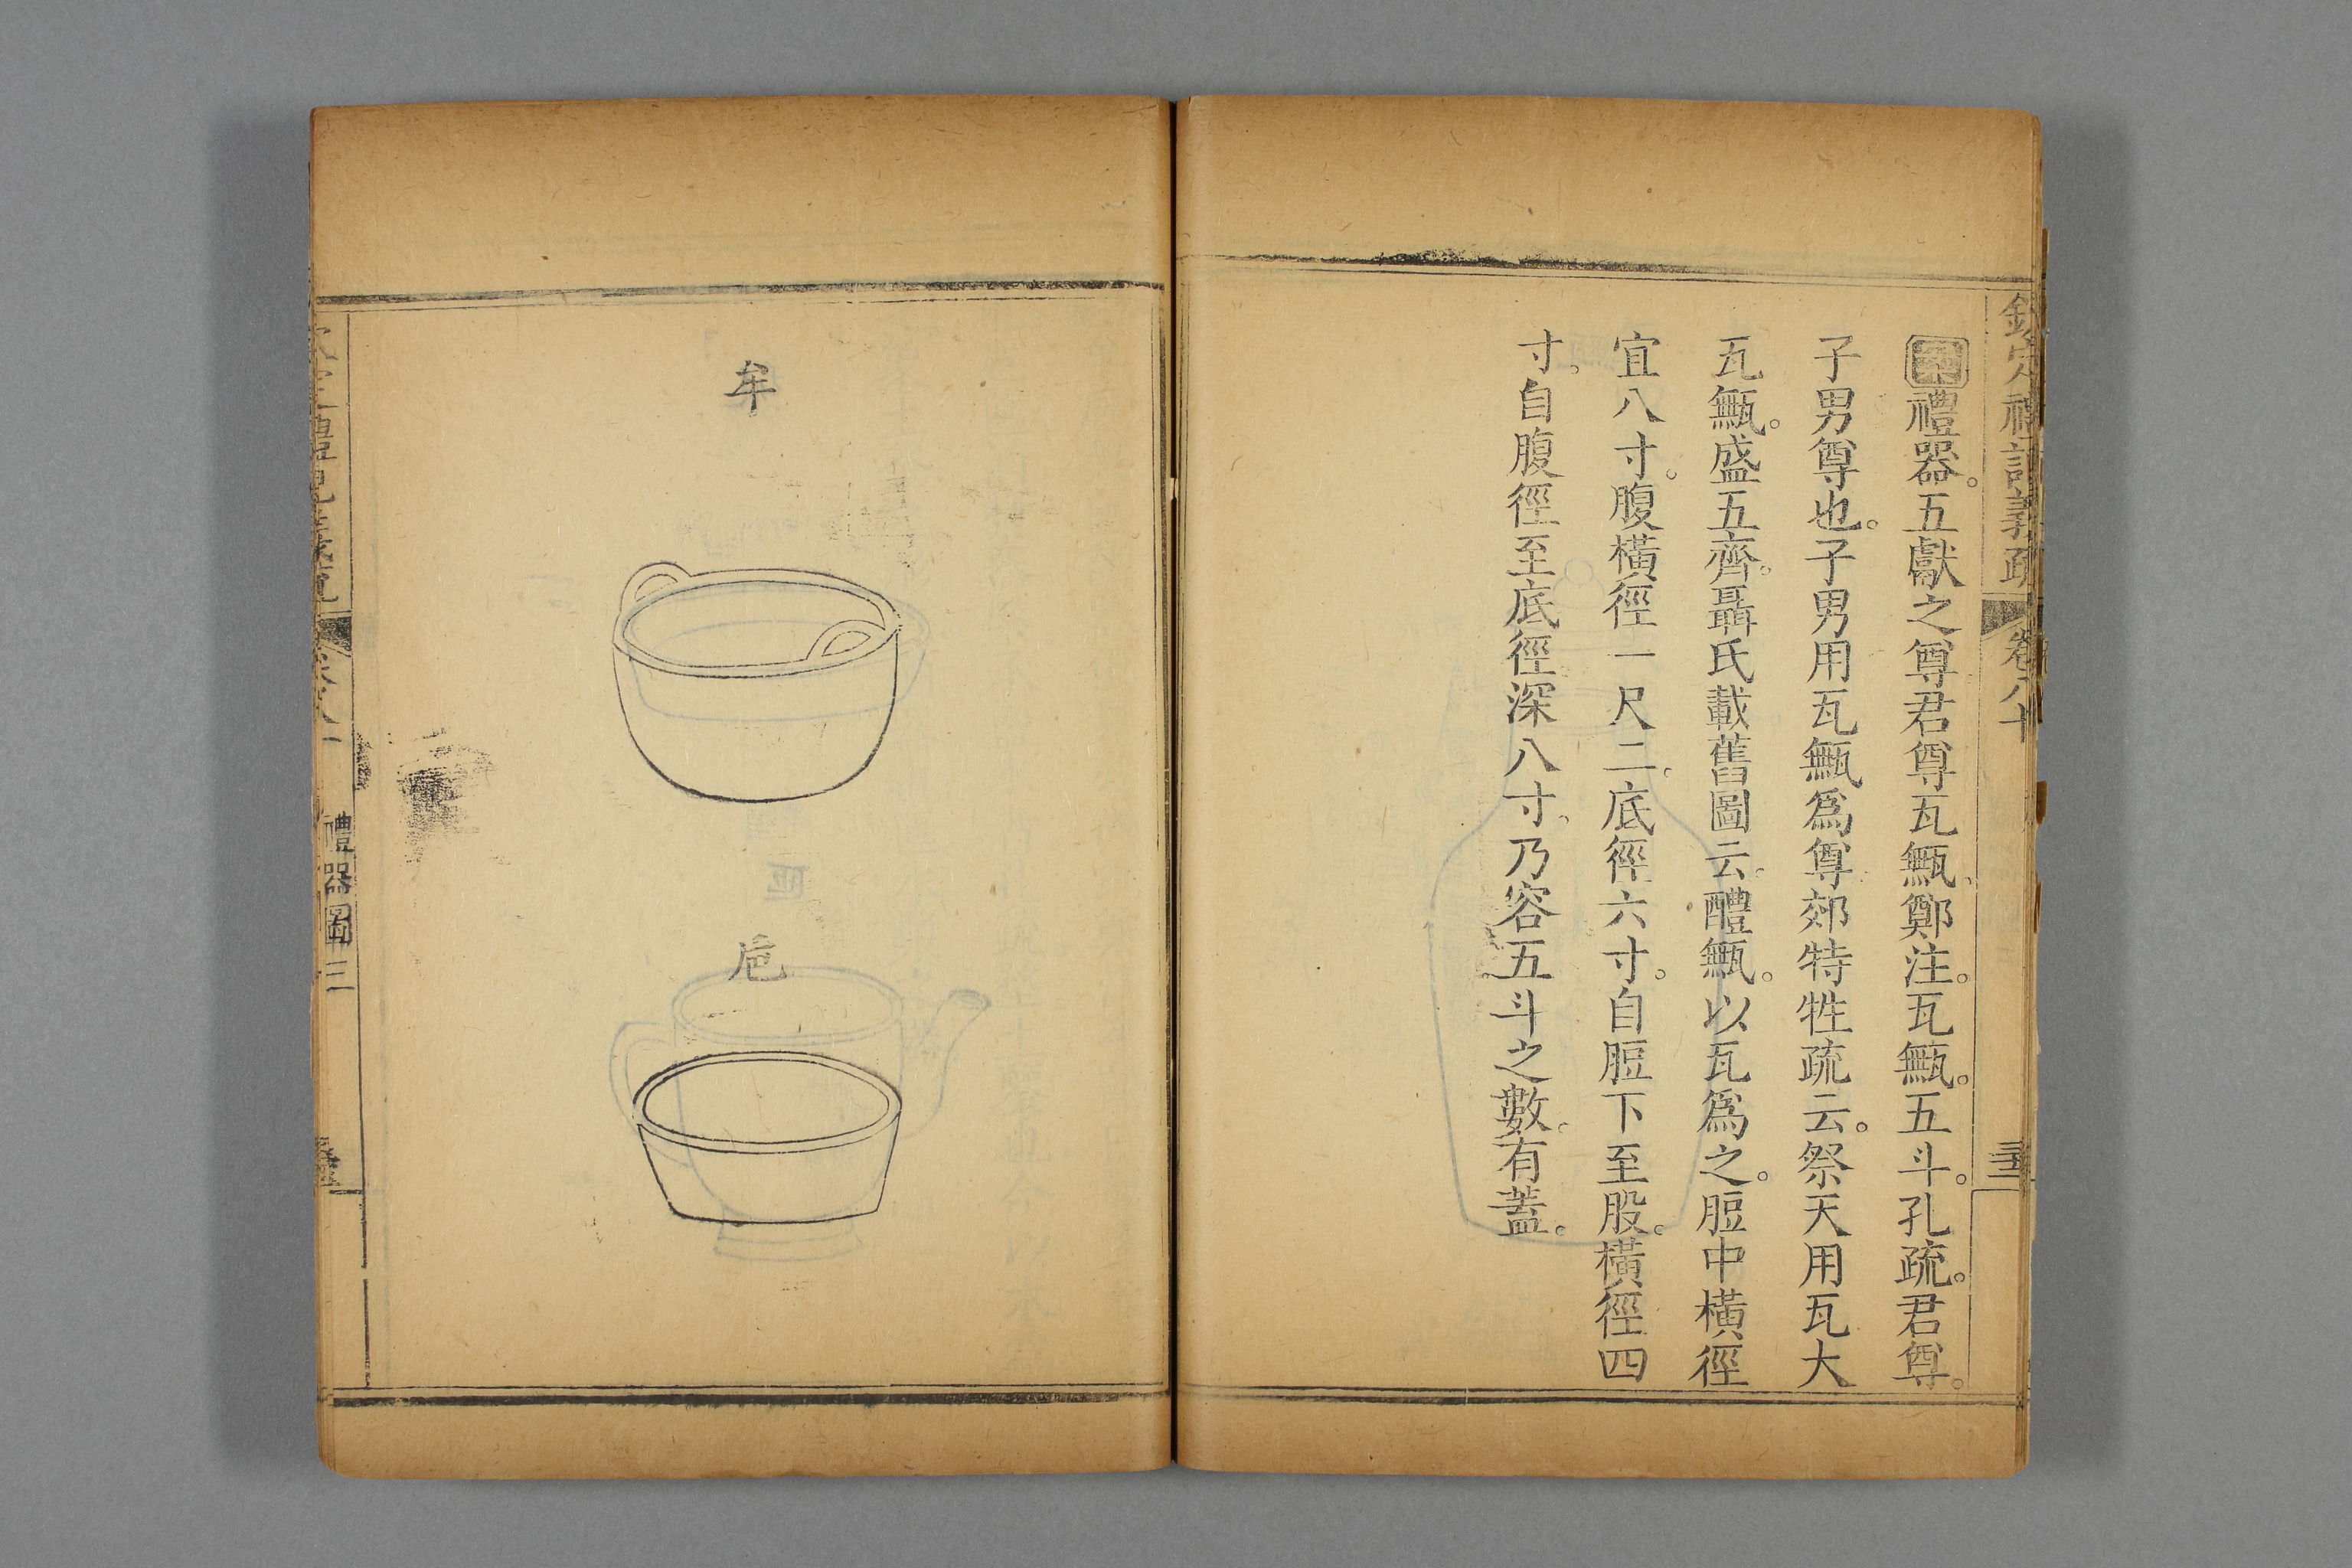 欽定禮記義疏 卷八十
禮器。五獻之尊君尊瓦甒。鄭注。瓦甒。五斗。孔疏。君尊。
子男尊也。子男用瓦甒爲尊郊特牲疏云。祭天用瓦大
瓦甒。盛五齊。聶氏載舊圖云。醴甒。以瓦爲之。脰中橫徑
宜八寸。腹橫徑一尺二。底徑六寸。自脰下至股。橫徑四
寸。自腹徑至底徑深八寸。乃容五斗之數。有蓋。
牟
巵
禮器圖三